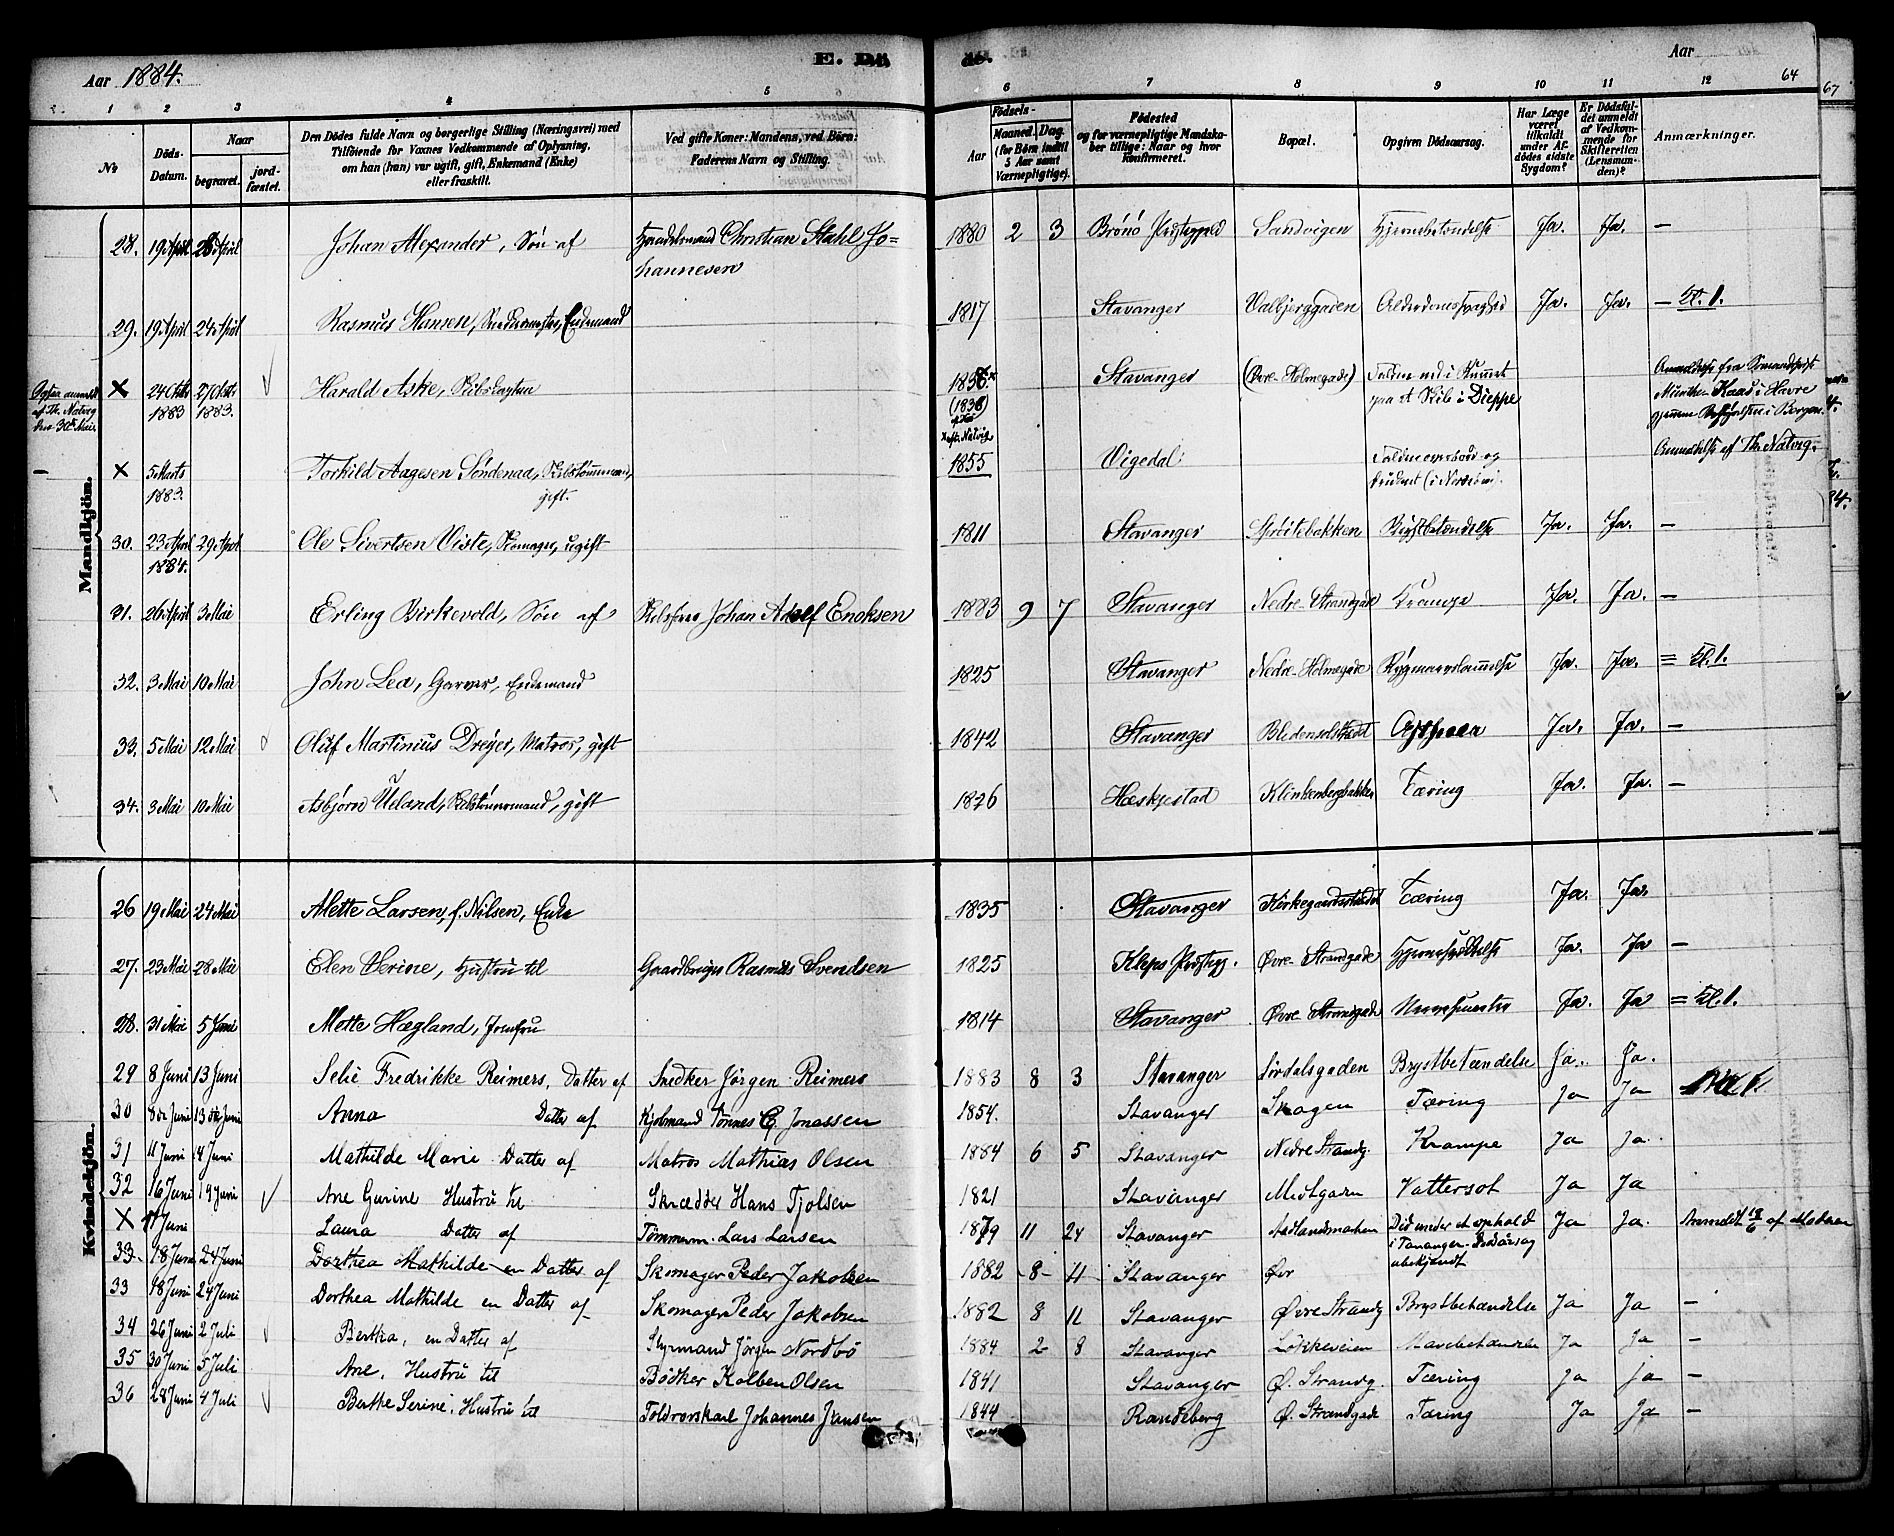 Aar 1884. E. Dø de. Aar 64
67
1 2 3 4 5 6 7 8 9 10 11 12
No Døds-Datum. Naar begravet. jord-fæstet. Den Dødes fulde Navn og borgerlige Stilling (Næringsvei) med Tilføiende for Voxnes Vedkommende af Oplysning, om han (hun) var ugift, gift, Enkemand (Enke) eller fraskilt. Ved gifte Koner: Mandens, ved Børn: Faderens Navn og Stilling. Fødsels- Aar Maaned. Dag. (for Børn indtil 5 Aar samt Værnepligtige). Fødested og for værnepligtige Mandskaber tillige: Naar og hvor konfirmeret. Bopæl. Opgiven Dødsaarsag. Har Læge været tilkaldt under Afdødes sidste Sygdom? Er Dødsfaldet anmeldt af Vedkommende for Skifteretten (Lensmanden)? Anmærkninger.
Mandkjön.
28. 19 April 28 April Johan Alexander, Søn af Handelsmand Christian Stahl Jo=
hannesen 1880 2 3 Brönö Præstegjeld Sandvigen Hjernebetændelse Ja. Ja. —
29. 19 April 24 April Rasmus Hansen, Snedkermester, Enkemand 1817 Stavanger Valbjerggaden Alderdomssvaghed Ja. Ja. —
× 24 Oktbr 1883 27 Oktbr 1883. Harald Aske, Skibskaptein Stavanger (Øvre-Holmegade) Falden ned i Rummet
paa et Skib i Dieppe Anmeldelse fra Sømandsprest
Munthe Kaas i Havre
× 5 Marts 1883. Torkild Aagesen Söndenaa, Skibstømmermand,
gift. 1855 Vigedal Anmeldelse af Th. Natvig.
30. 23 April 1884. 29 April Ole Sivertsen Viste, Skomager, ugift 1811 Stavanger Sprøitebakken Brystbetændelse Ja. Ja. —
31. 26 April 3 Mai Erling Birkevold, Søn af Skibsfører Johan Adolf Enoksen 1883 9 7 Stavanger Nedre-Strandgade Krampe Ja. Ja. —
32. 3 Mai 10 Mai John Lea, Garver, Enkemand 1825 Stavanger Nedre-Holmegade Rygmarvslammelse Ja. Ja.
33. 5 Mai 12 Mai Oluf Martinius Dreyer, Matros, gift 1842 Stavanger Ja. Ja. —
34. 3 Mai 10 Mai Asbjørn Ueland, Skibstømmermand, gift 1826 Hæskjestad Klinkenbergbakken Tæring Ja. Ja. —
Kvindekjön.
26 19 Mai 24 Mai Mette Larsen, f. Nilsen, Enke 1835 Stavanger Kirkegaardsstrædet Tæring Ja. Ja.
27. 23 Mai 28 Mai Elen Serine, Hustru til Gaardbruger Rasmus Svendsen 1825 Kleps Præstegj. Øvre-Strandgade Ja. Ja —
28. 31 Mai 5 Juni Mette Hægland, Jomfru 1814 Stavanger Øvre Strandgade Ja. Ja
29 8 Juni 13 Juni Selie Fredrikke Reimers, Datter af Snedker Jörgen Reimers 1883 8 3 Stavanger Lørdalsgaden Brystbetændelse Ja. Ja.
30 8de Juni 13de Juni Anna Datter af Kjøbmand Tönnes G Jonassen 1854. Stavanger Skagen Tæring Ja Ja
31 11 Juni 4 Juni Mathilde Marie Datter af Matros Mathias Olsen 1884 6 5 Stavanger Nedre Strandg. Krampe Ja Ja.
32 16 Juni 19 Juni Ane Gurine Hustru til Skrædder Hans Tjolsen 1821 Stavanger Midtgaden Vattersot Ja Ja
× 17 Juni Laura Datter af Tömmerm. Lars Larsen 1879 11 24 Stavanger Aadlandsmarken Död under et ophold
i Tananger. Dødsårsag
ubekjendt Ja Ja. Anmeldt 18/6 af Moderen
33. 18 Juni 24 Juni Dorthea Mathilde en Datter af Skomager Peder Jakobsen 1882 -8- 11 Stavanger Øvr
33 18 Juni 24 Juni Dorthea Mathilde en Datter af Skomager Peder Jakobsen 1882 8 11 Stavanger Øvre Strandg Brystbetændelse Ja Ja —
34 26 Juni 2 Juli Bertha, en Datter af Styrmand Jörgen Nordbö 1884 2 8 Stavanger Løkkeveien Mavebetændelse Ja Ja —
35 30 Juni 5 Juli Ane, Hustru til Bødker Kolben Olsen 1841 Stavanger Ø. Strandg. Tæring Ja Ja —
36 28 Juni 4 Juli Berthe Serine, Hustru til Toldrorskarl Johannes Jansen 1844 Randeberg Ø. Strandgade Tæring Ja Ja —